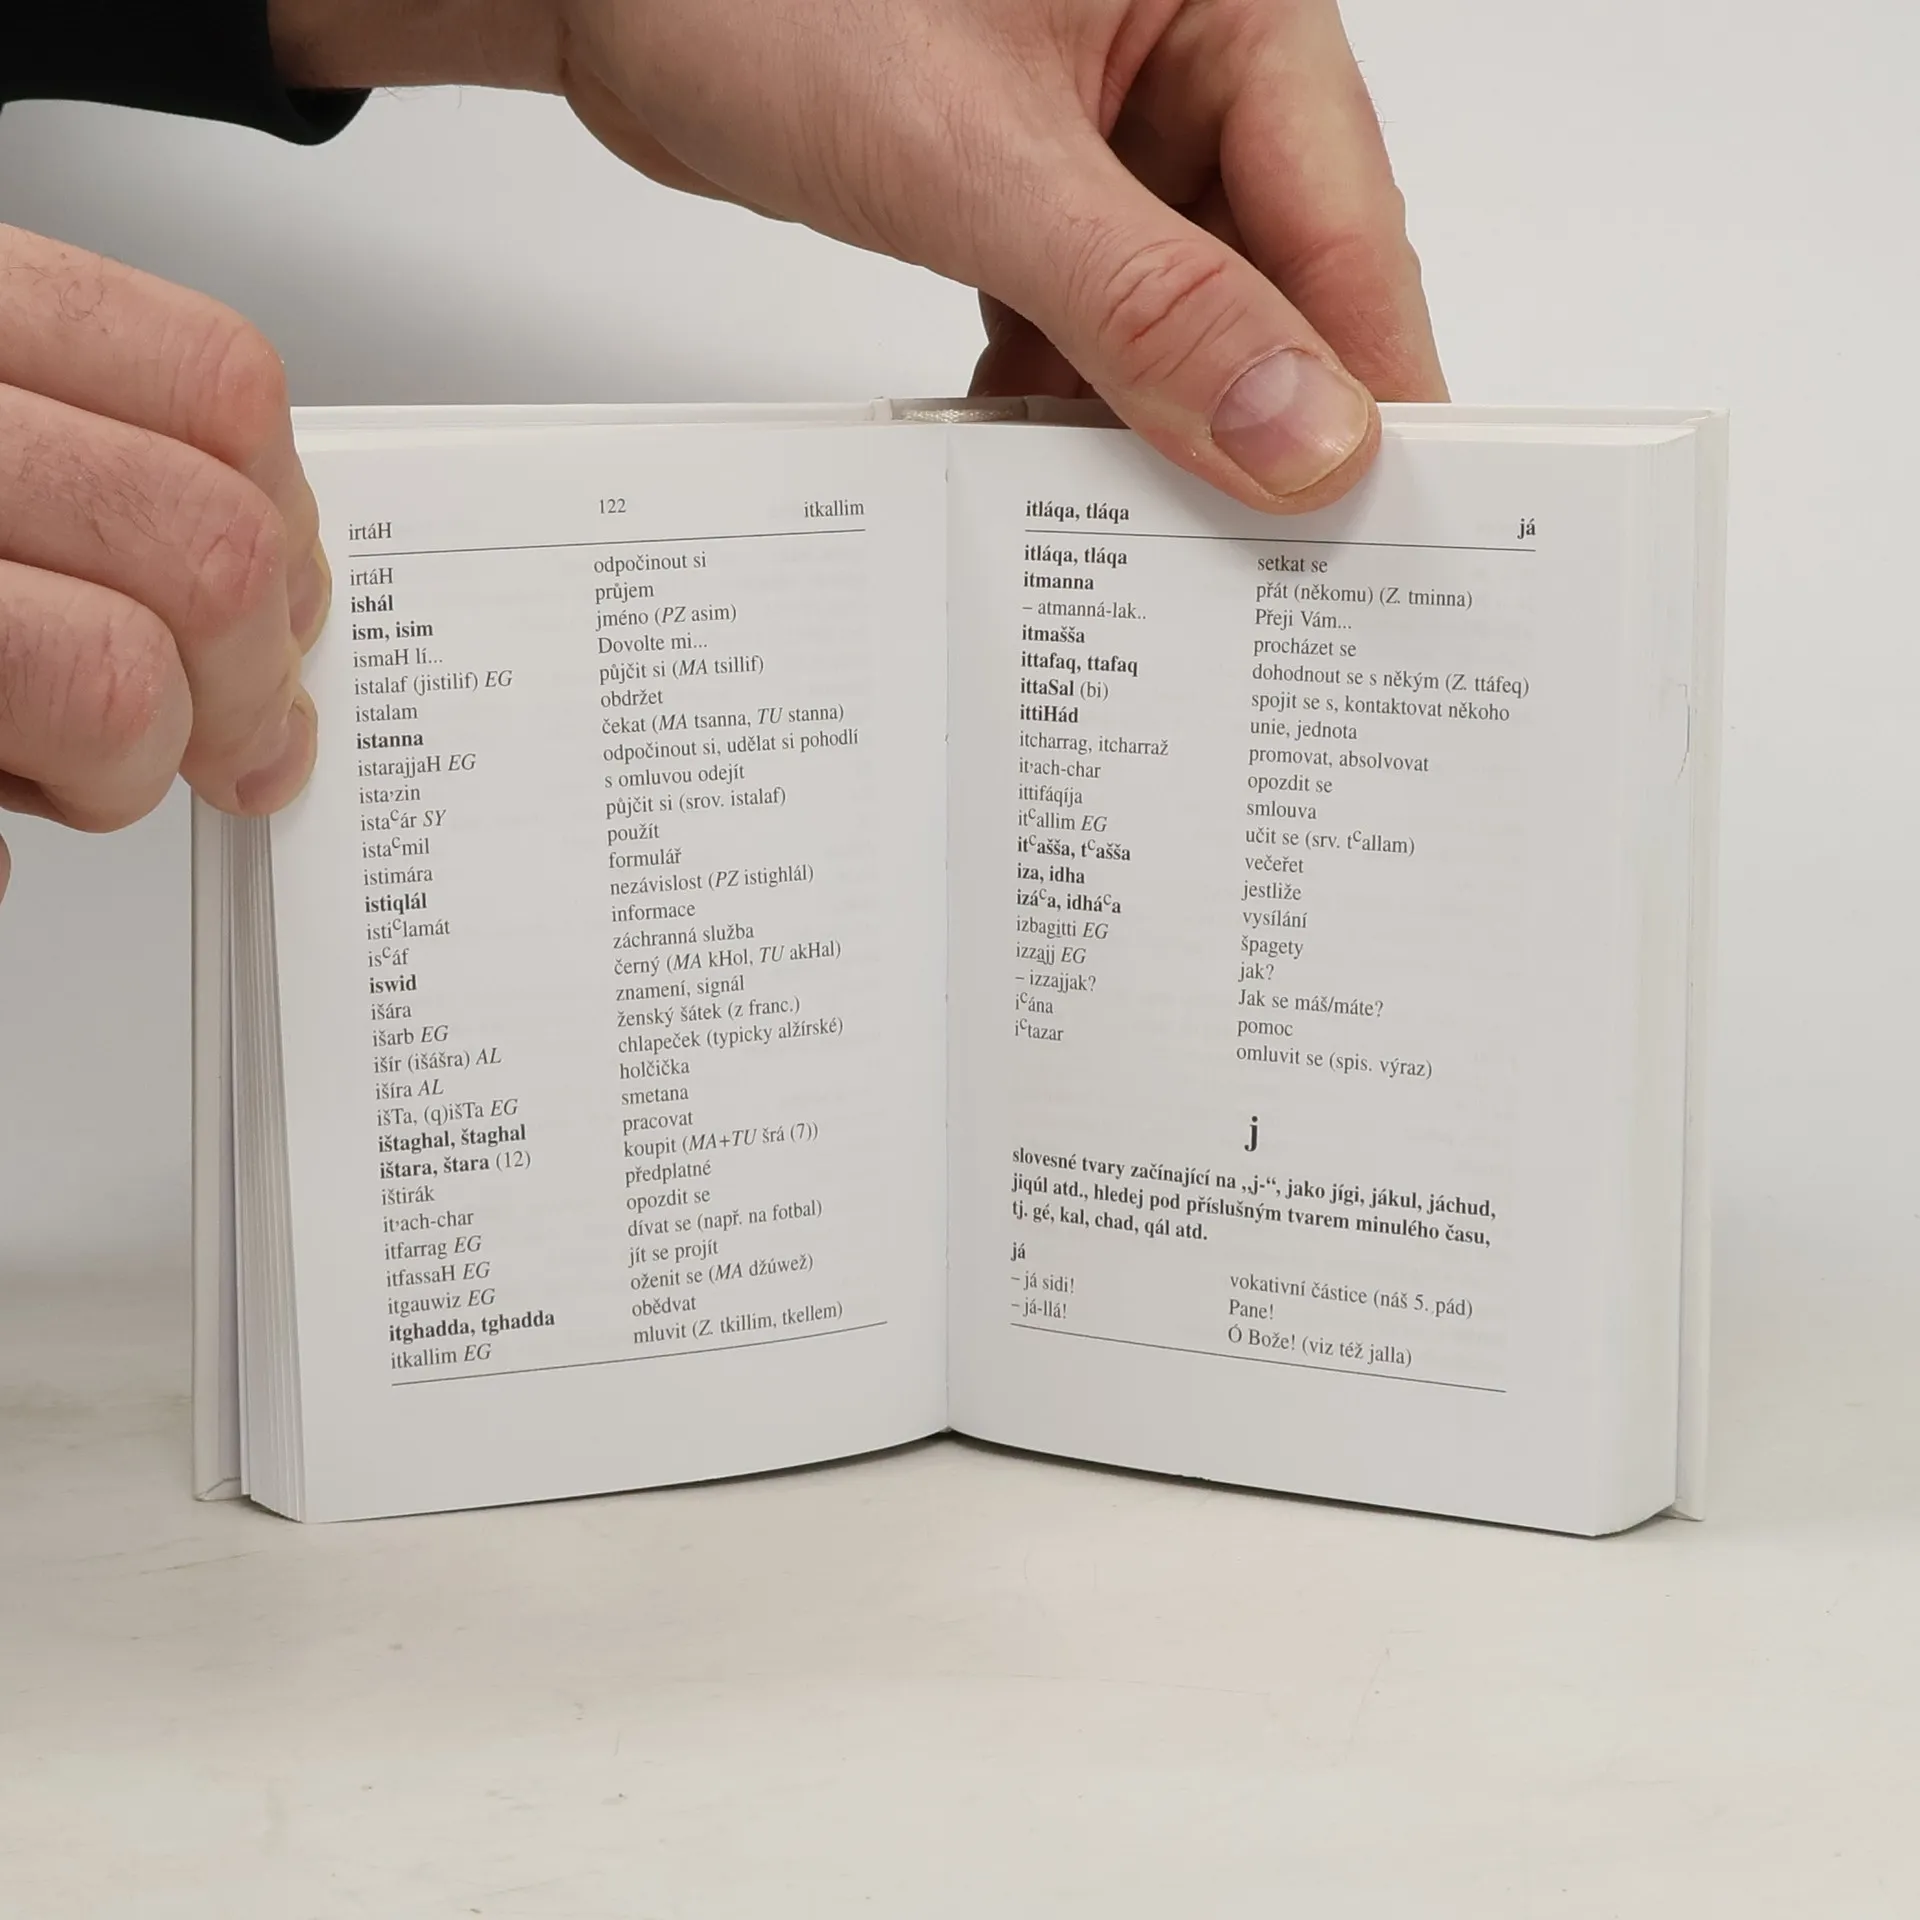 irtáH 122 itkallim
irtáH odpočinout si
ishál průjem
ism, isim jméno (PZ asim)
ismaH lí... Dovolte mi...
istalaf (jistilif) EG půjčit si (MA tsillif)
istalam obdržet
istanna čekat (MA tsanna, TU stanna)
istarajjaH EG odpočinout si, udělat si pohodlí
istaʾzin s omluvou odejít
istaᶜár SY půjčit si (srov. istalaf)
istaᶜmil použít
istimára formulář
istiqlál nezávislost (PZ istighlál)
istiᶜlamát informace
isᶜáf záchranná služba
iswid černý (MA kHol, TU akHal)
išára znamení, signál
išarb EG ženský šátek (z franc.)
išír (išášra) AL chlapeček (typicky alžírské)
išíra AL holčička
išTa, (q)išTa EG smetana
ištaghal, štaghal pracovat
ištara, štara (12) koupit (MA+TU šrá (7))
ištirák předplatné
itʾach-char opozdit se
itfarrag EG dívat se (např. na fotbal)
itfassaH EG jít se projít
itgauwiz EG oženit se (MA džúwež)
itghadda, tghadda obědvat
itkallim EG mluvit (Z. tkillim, tkellem)
itláqa, tláqa já
itláqa, tláqa setkat se
itmanna přát (někomu) (Z. tminna)
– atmanná-lak.. Přeji Vám...
itmašša procházet se
ittafaq, ttafaq dohodnout se s někým (Z. ttáfeq)
ittaSal (bi) spojit se s, kontaktovat někoho
ittiHád unie, jednota
itcharrag, itcharraž promovat, absolvovat
itʾach-char opozdit se
ittifáqíja smlouva
itᶜallim EG učit se (srv. tᶜallam)
itᶜašša, tᶜašša večeřet
iza, idha jestliže
izáᶜa, idháᶜa vysílání
izbagitti EG špagety
izzajj EG jak?
– izzajjak? Jak se máš/máte?
iᶜána pomoc
iᶜtazar omluvit se (spis. výraz)
j
slovesné tvary začínající na „j-“, jako jígi, jákul, jáchud,
jiqúl atd., hledej pod příslušným tvarem minulého času,
tj. gé, kal, chad, qál atd.
já vokativní částice (náš 5. pád)
– já sidi! Pane!
– já-llá! Ó Bože! (viz též jalla)